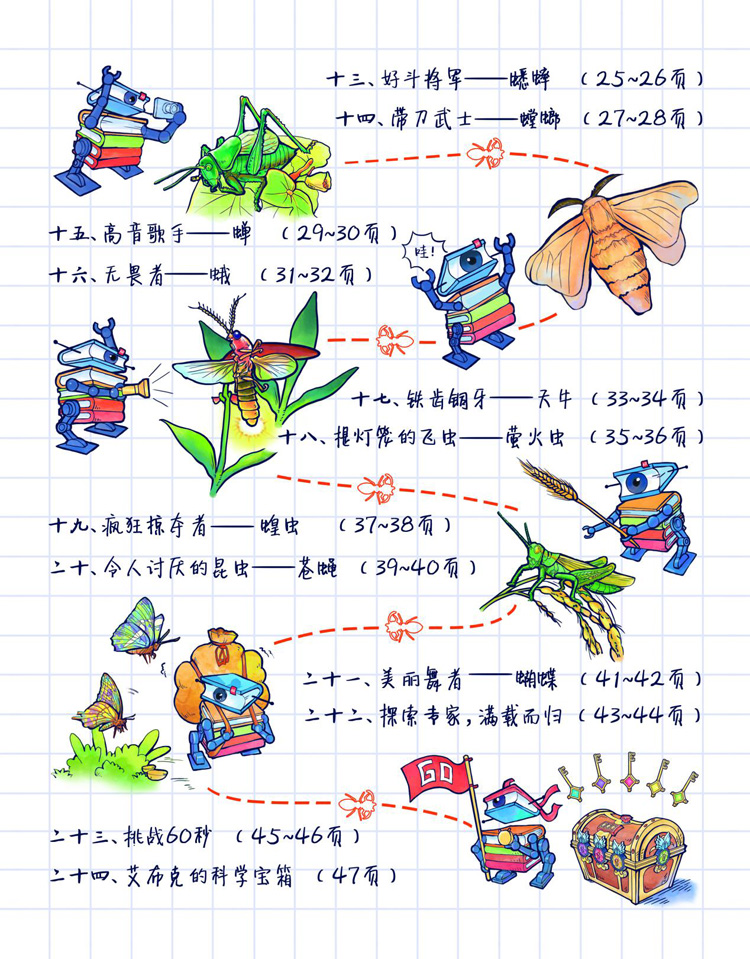 十三、好斗将军——蟋蟀 (25~26页)
十四、带刀武士——螳螂 (27~28页)
十五、高音歌手——蝉 (29~30页)
十六、无畏者——蛾 (31~32页)
哇!
十七、铁齿钢牙——天牛 (33~34页)
十八、提灯笼的飞虫——萤火虫 (35~36页)
十九、疯狂掠夺者——蝗虫 (37~38页)
二十、令人讨厌的昆虫——苍蝇 (39~40页)
二十一、美丽舞者——蝴蝶 (41~42页)
二十二、探索专家,满载而归 (43~44页)
GO
二十三、挑战60秒 (45~46页)
二十四、艾布克的科学宝箱 (47页)